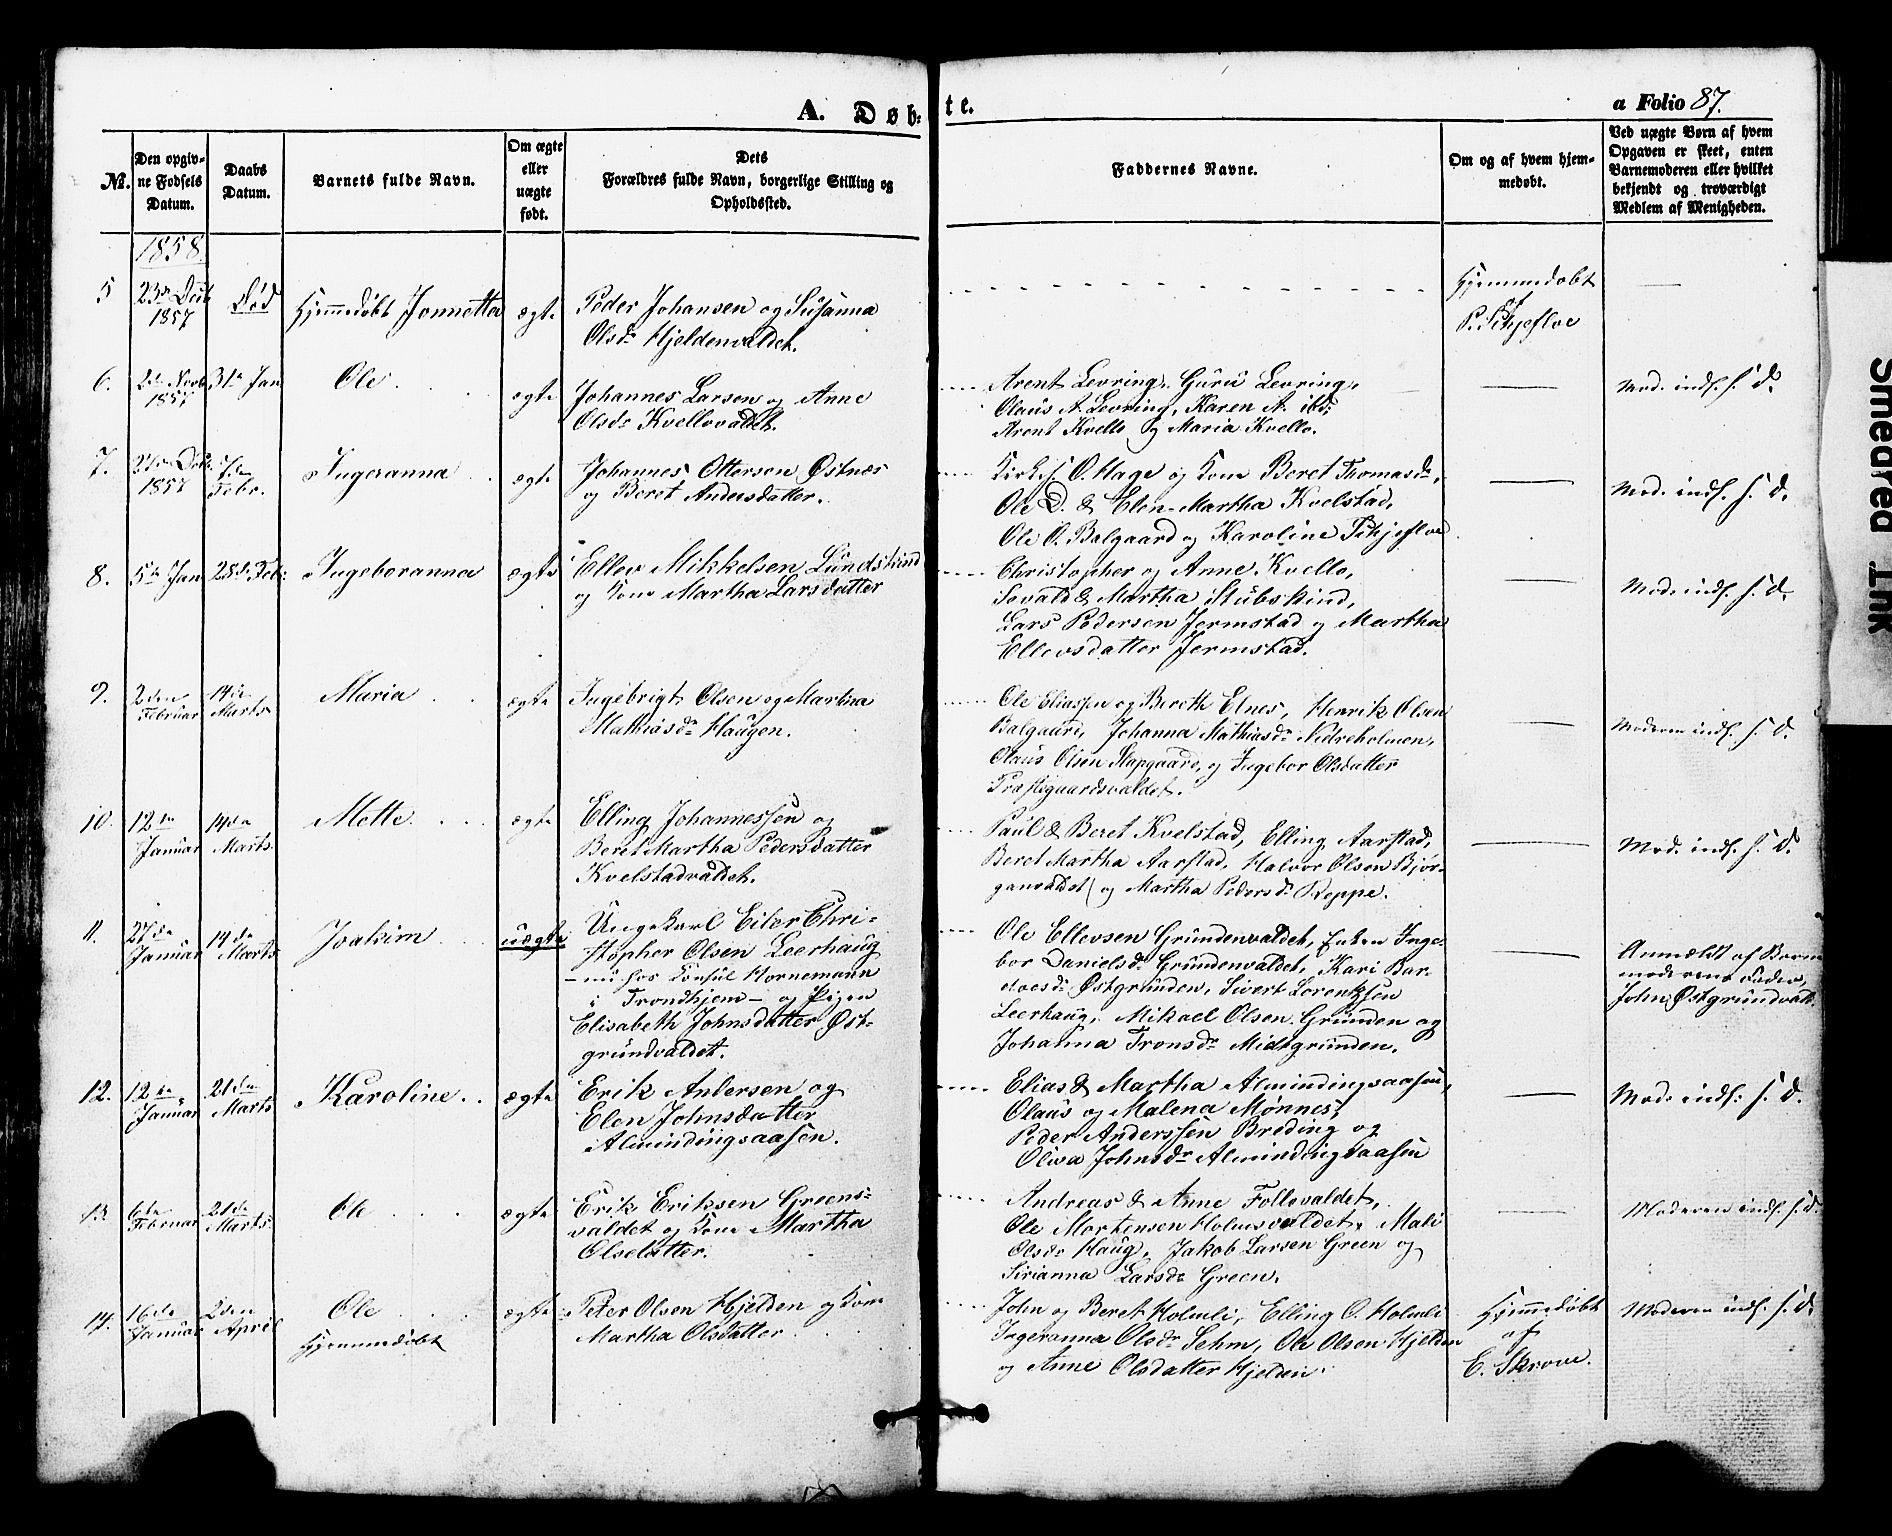 A. Døb-
te.
a Folio 87.
№.
Den opgiv-
ne Fødsels
Datum.
Daabs
Datum.
Barnets fulde Navn.
Om ægte
eller
uægte
født.
Dets
Forældres fulde Navn, borgerlige Stilling og
Opholdssted.
Faddernes Navne.
Om og af hvem hjem-
medøbt.
Ved uægte Børn af hvem
Opgaven er skeet, enten
Barnemoderen eller hvilket
bekjendt og troværdigt
Medlem af Menigheden.
1858.
5
23de Decb
1857
Død
Hjemmedøbt Jonnetta
ægte
Peder Johansen og Susanna
Olsdr Hjeldenvaldet.
Hjemmedøbt
af
P. Skjefloe
6.
2de Novb
1857
31te Jan
Ole.
ægte
Johannes Larsen og Anne
Olsdr Kvellovaldet.
Arent Levring, Guru Levring,
Olaus A. Levring, Karen A. ibd;
Arent Kvello og Maria Kvello.
Mod. indf. s. d.
7.
1857
7de
Febr.
Ingeranna
ægte
Johannes Ottersen Østnæs
og Beret Andersdatter.
Kirkes. O. Hage og Kone Beret Thomasdr,
Ole D. & Elen-Martha Kvelstad,
Ole O. Balgaard og Karoline Skjefloe
Mod. indf. s. d.
8.
5te Jan
28de Feb.
Ingeboranna
ægte
Ellev Mikkelsen Lundskind
og Kone Martha Larsdatter
Christopher og Anne Kvello,
Sevald & Martha Stubskind,
Lars Pedersen Jermstad og Martha
Ellevsdatter Jermstad.
Mod. indf. s. d.
9.
2den
Februar
14de
Marts
Maria
ægte
Ingebrigt Olsen og Martina
Mathiasdr Haugen.
Ole Eliassen og Bereth Elnes, Henrik Olsen
Balgaard, Johanna Mathiasdr Nedreholmen,
Olaus Olsen Stapgaard, og Ingebor Olsdatter
Præstegaardsvaldet.
Moderen indf. s. d.
10.
12te
Januar
14de
Marts.
Mette
ægte
Elling Johannessen og
Beret Martha Pedersdatter
Kvelstadvaldet.
Paul & Beret Kvelstad, Elling Aarstad,
Beret Martha Aarstad, Halvor Olsen Bjør-
ganvaldet og Martha Pedersdr Reppe.
Mod. indf. s. d.
11.
27de
Januar
14de
Marts
Joakim
uægte
Ungekarl Eiler Chri-
stopher Olsen Leerhaug
- nu hos Konsul Hornemann
i Trondhjem - og Pigen
Elisabeth Johnsdatter Øst-
grundvaldet.
Ole Ellevsen Grundenvaldet, Enken Inge-
bor Danielsdr Grundenvaldet, Kari Bar-
doesdr Østgrunden, Sivert Lorentzsen
Leerhaug, Mikael Olsen Grunden og
Johanna Tronsdr Midtgrunden.
Anmældt af Barne
moderens Fader,
John Østgrundvald.
12.
12te
Januar
21de
Marts
Karoline.
ægte
Erik Andersen og
Elen Johnsdatter
Almindingsaasen.
Elias & Martha Almindingsaasen,
Olaus og Malena Mønnes,
Peder Anderssen Breding og
Oliva Johnsdr Almindingsaasen
Mod. indf. s. d.
13.
6te
Februar
21de
Marts.
Ole
ægte
Erik Eriksen Greens-
valdet og Kone Martha
Olsdatter.
Andreas & Anne Follovaldet,
Ole Mortensen Holmsvaldet, Mali
Olsdr Haug, Jakob Larsen Green og
Sirianna Larsdr Green.
Moderen indf. s. d.
14.
16de
Januar
2den
April
Ole
Hjemmedøbt
ægte
Peter Olsen Hjelden og Kone
Martha Olsdatter
John og Beret Holmli, Elling O. Holmli
Ingeranna Olsdr Sehm, Ole Olsen Hjelden
og Anne Olsdatter Hjelden.
Hjemmedøbt
af
E. Skrove.
Moderen indf. s. d.
Smedrød Ink